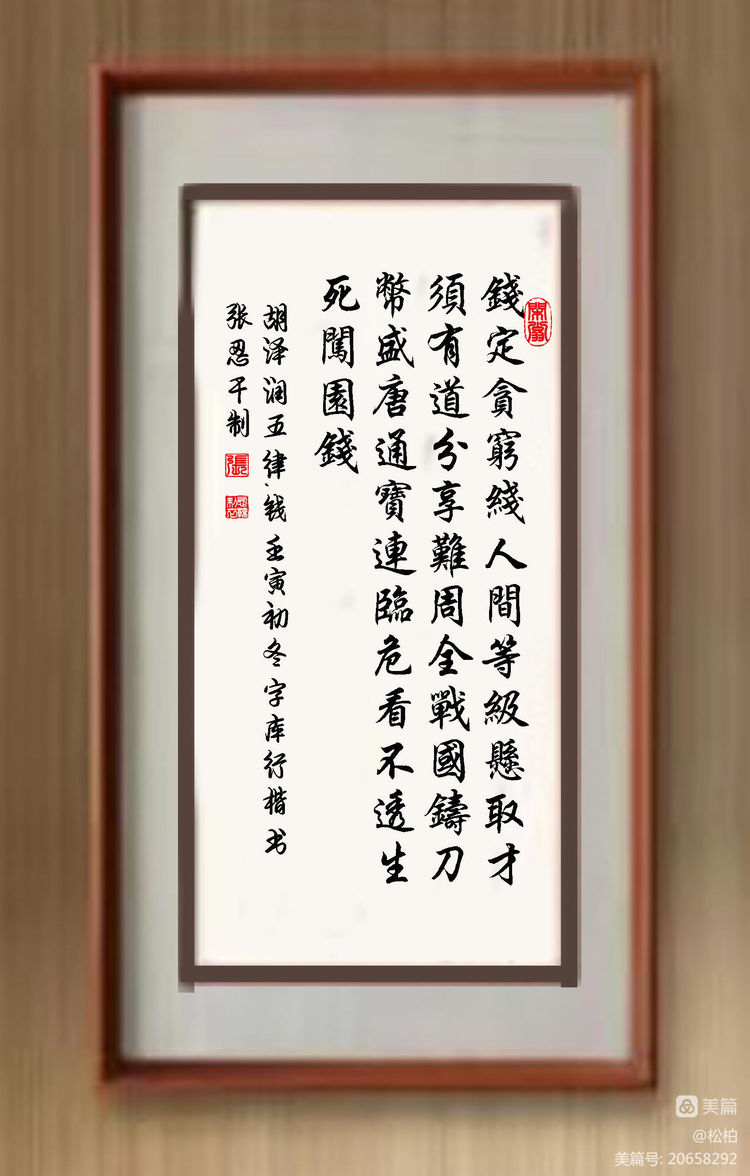 錢定貪窮綫人間等級懸取才
須有道分享難周全戰國鑄刀
幣盛唐通寶連臨危看不透生
死闖園錢
胡泽润五律、钱壬寅初冬字库行楷书
张忍干制
美篇
@松柏
美篇号: 20658292